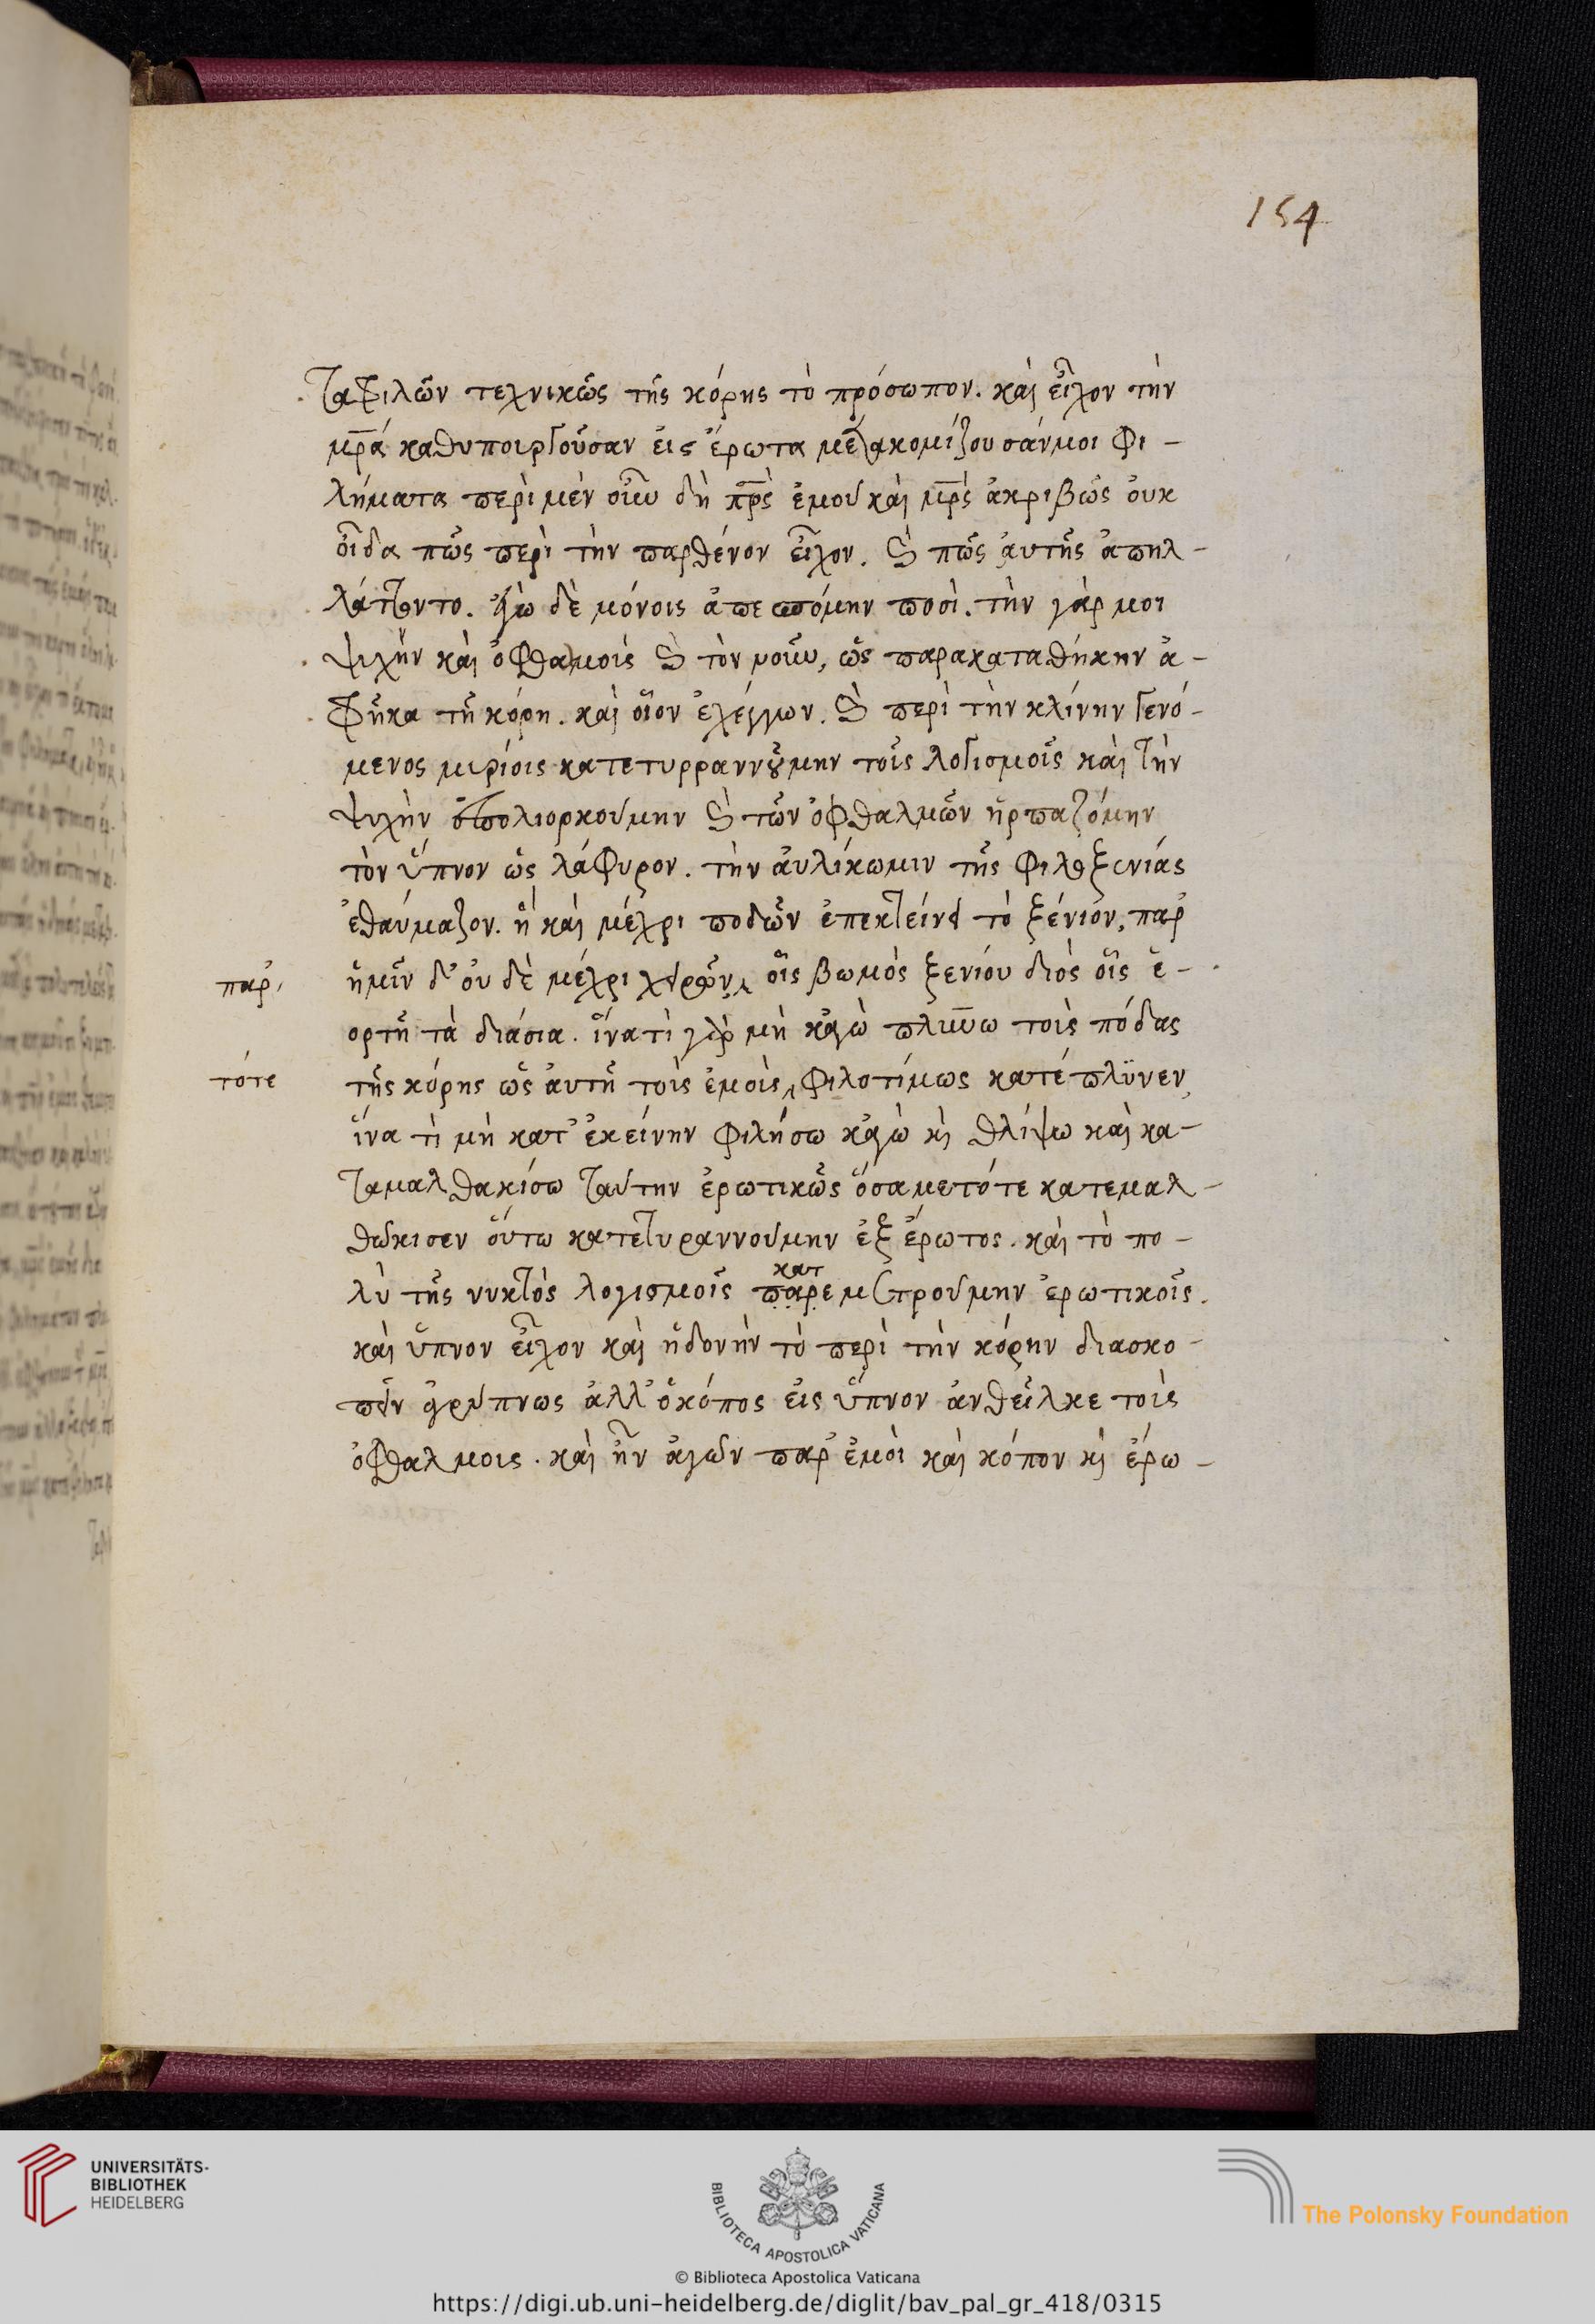 154
ταφιλῶν τεχνικῶς τῆς κόρης τὸ πρόσωπον. καὶ εἶχον τὴν
μρ̅ά καθυπουργοῦσαν εἰς ἔρωτα μετακομίζουσάν μοι φι-
λήματα περὶ μὲν οὖν δὴ πρ̅ς ἐμοῦ καὶ μρ̅ς ἀκριβῶς οὐκ
οἶδα πῶς περὶ τὴν παρθένον εἶχον. καὶ πῶς αὐτῆς ἀπηλ-
λάττοντο. ἐγὼ δὲ μόνοις ἀπεσπόμην ποσὶ. τὴν γάρ μοι
ψυχὴν καὶ ὀφθαλμοὺς καὶ τὸν νοῦν, ὡς παρακαταθήκην ἀ-
φῆκα τῇ κόρῃ. καὶ οἷον ἐλέγχων. καὶ περὶ τὴν κλίνην γενό-
μενος μυρίοις κατετυρραννούμην τοῖς λογισμοῖς καὶ τὴν
ψυχὴν ἐπολιορκούμην καὶ τῶν ὀφθαλμῶν ἡρπαζόμην
τὸν ὕπνον ὡς λάφυρον. τὴν αὐλίκωμιν τῆς φιλοξενίας
ἐθαύμαζον. ἢ καὶ μέχρι ποδῶν ἐπεκτείνει τὸ ξένιον, παρ'
ἡμῖν δ' οὐ δὲ μέχρι χειρῶν, οἷς βωμὸς ξενίου διὸς οἷς ἑ-
παρ'
ορτὴ τὰ διάσια. ἵνα τὶ γὰρ μὴ κἀγὼ πλύνω τοὺς πόδας
τῆς κόρης ὡς αὐτὴ τοὺς ἐμοὺς, φιλοτίμως κατέπλυνεν,
τότε
ἵνα τὶ μὴ κατ' ἐκείνην φιλήσω κἀγὼ καὶ θλίψω καὶ κα-
ταμαλθακίσω ταύτην ἐρωτικῶς ὅσα με τότε κατεμαλ-
θάκισεν οὕτω κατετυραννούμην ἐξ ἔρωτος. καὶ τὸ πο-
λὺ τῆς νυκτὸς λογισμοῖς παρεμετρούμην ἐρωτικοῖς.
κατ
καὶ ὕπνον εἶχον καὶ ἡδονὴν τὸ περὶ τὴν κόρην διασκο-
πεῖν ἀγρύπνως ἀλλ' ὁ κόπος εἰς ὕπνον ἀνθεῖλκε τοὺς
ὀφθαλμους. καὶ ἦν ἀγὼν παρ' ἐμοὶ καὶ κόπον καὶ ἔρω-
UNIVERSITÄTS-
BIBLIOTHEK
HEIDELBERG
BIBLIOTECA APOSTOLICA VATICANA
The Polonsky Foundation
© Biblioteca Apostolica Vaticana
https://digi.ub.uni-heidelberg.de/diglit/bav_pal_gr_418/0315